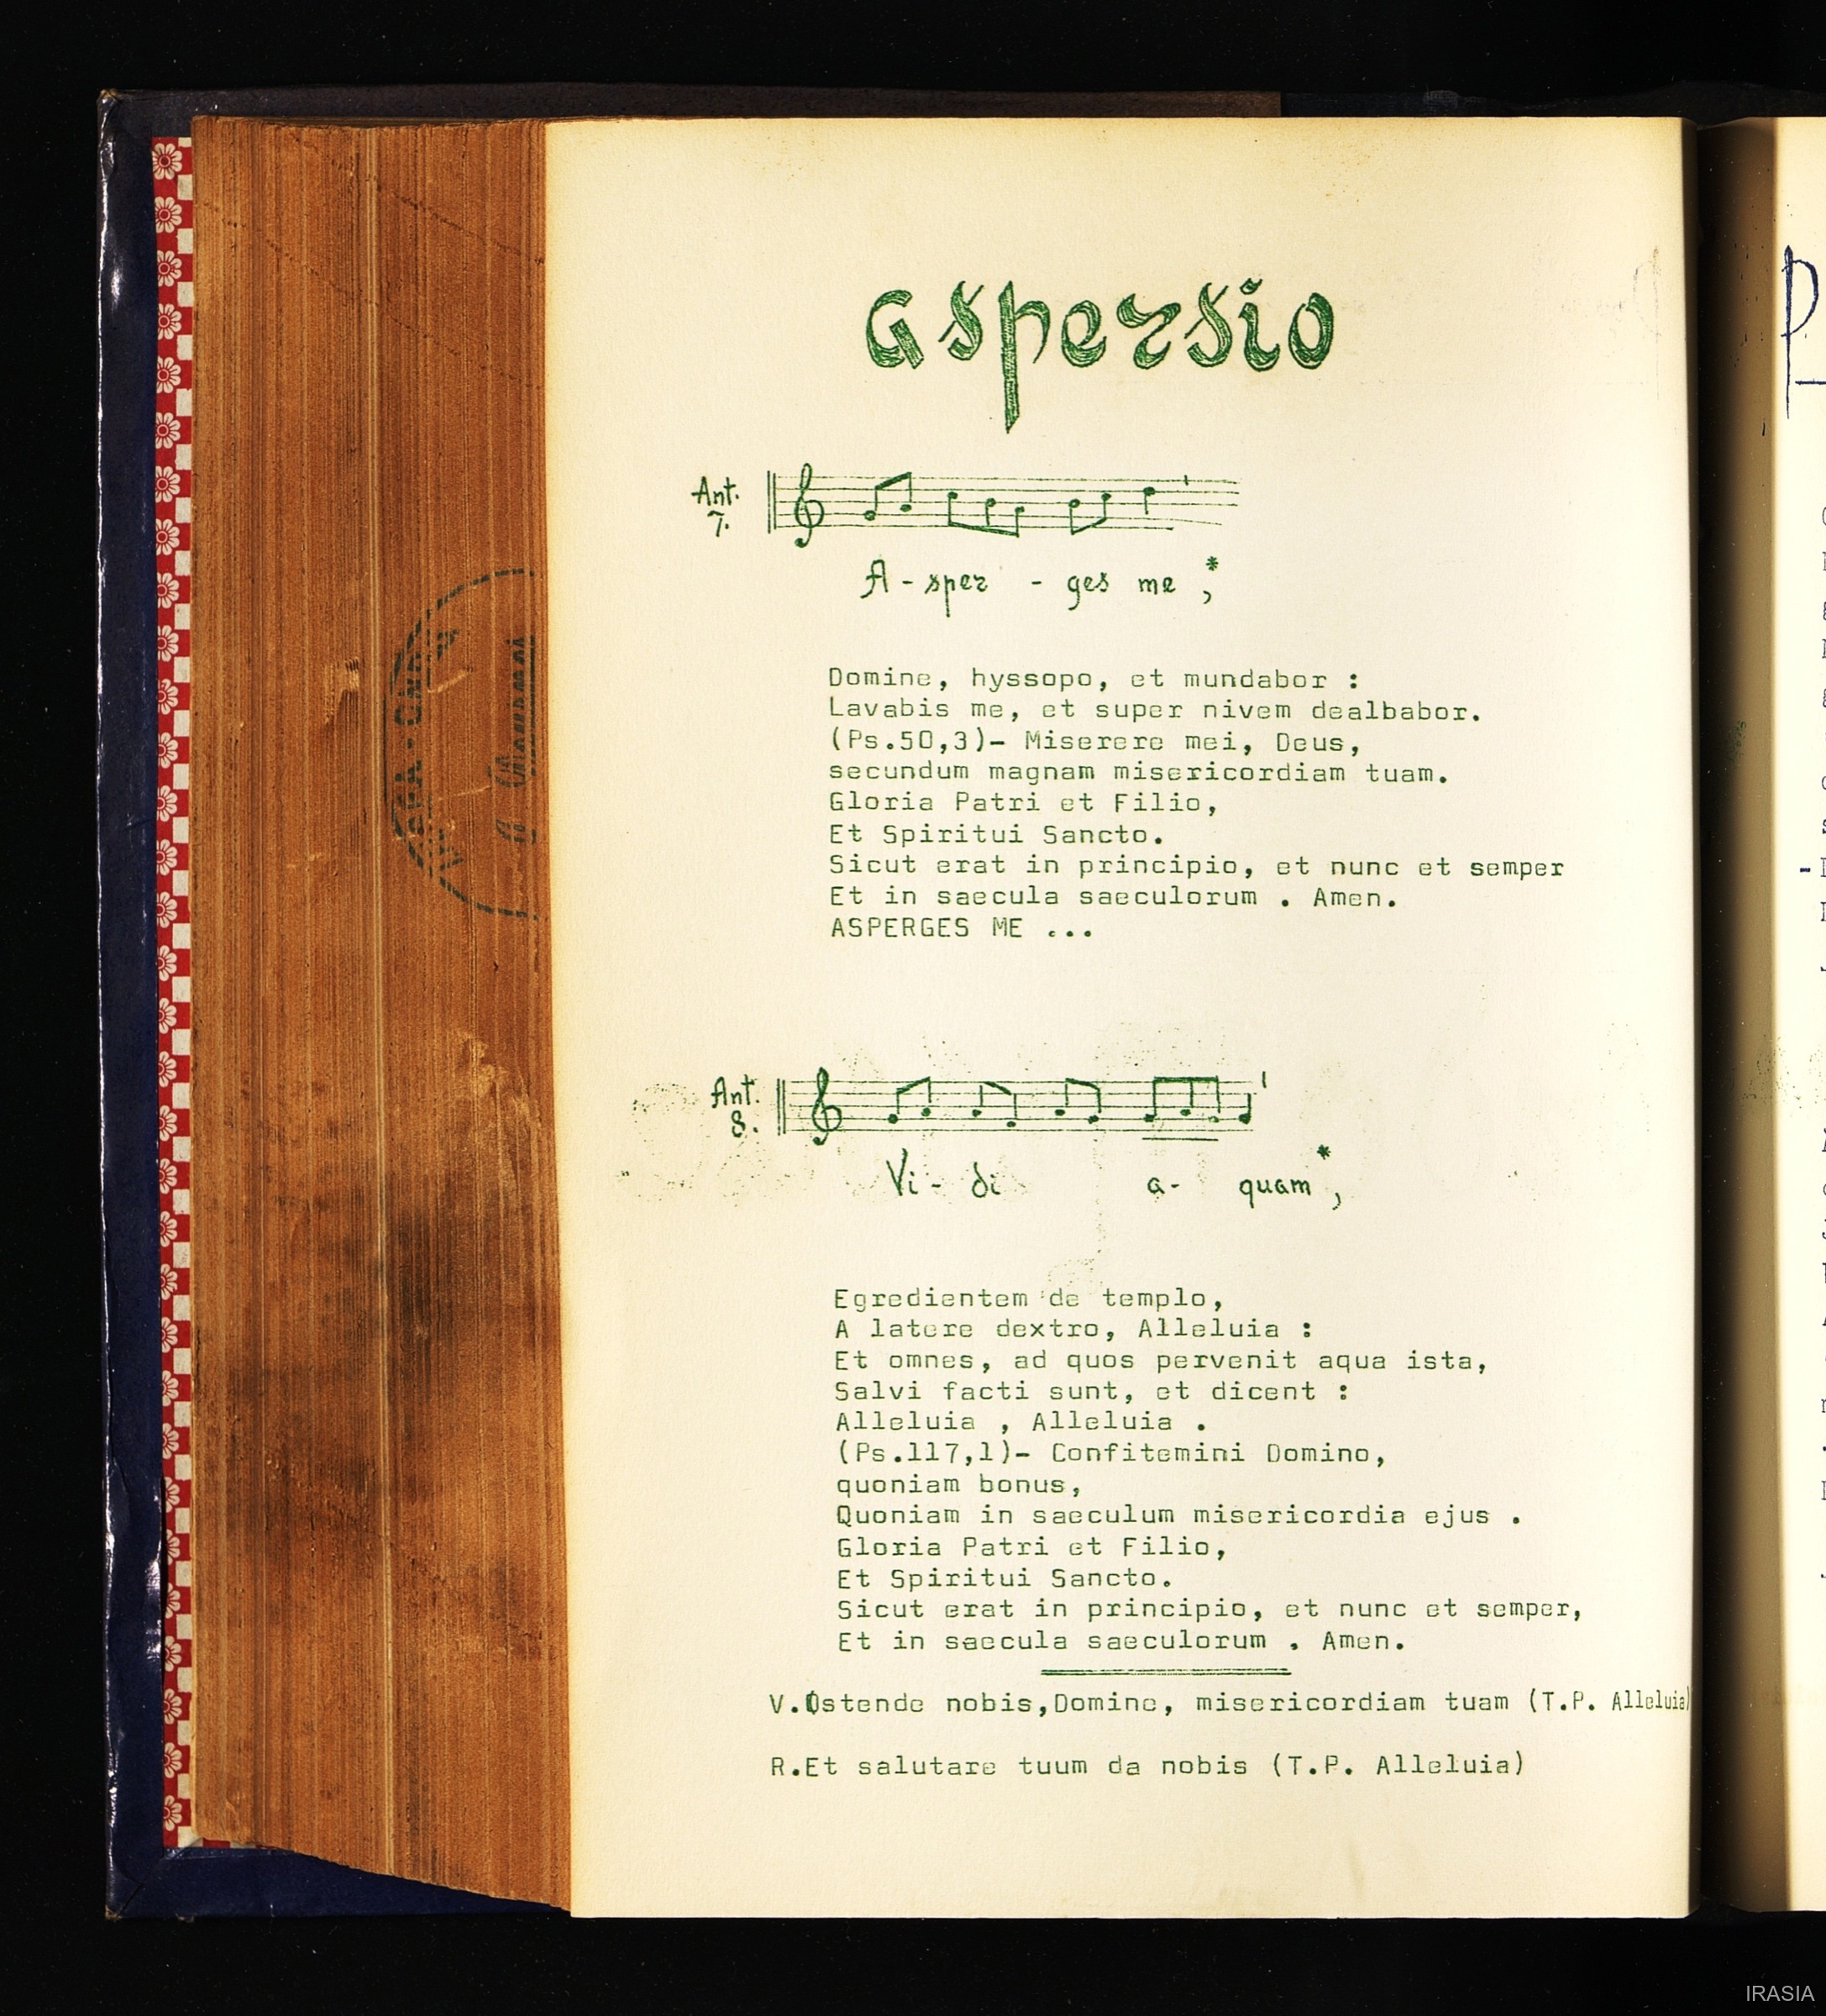 aspersio
Ant.
7.
A-sper - ges me, *
Domine, hyssopo, et mundabor :
Lavabis me, et super nivem dealbabor.
(Ps.50,3)- Miserere mei, Deus,
secundum magnam misericordiam tuam.
Gloria Patri et Filio,
Et Spiritui Sancto.
Sicut erat in principio, et nunc et semper
Et in saecula saeculorum . Amen.
ASPERGES ME ...
Ant.
8.
Vi - di a- quam, *
Egredientem de templo,
A latere dextro, Alleluia :
Et omnes, ad quos pervenit aqua ista,
Salvi facti sunt, et dicent :
Alleluia , Alleluia .
(Ps.117,1)- Confitemini Domino,
quoniam bonus,
Quoniam in saeculum misericordia ejus .
Gloria Patri et Filio,
Et Spiritui Sancto.
Sicut erat in principio, et nunc et semper,
Et in saecula saeculorum . Amen.
V.Ostende nobis,Domine, misericordiam tuam (T.P. Alleluia)
R.Et salutare tuum da nobis (T.P. Alleluia)
IRASIA